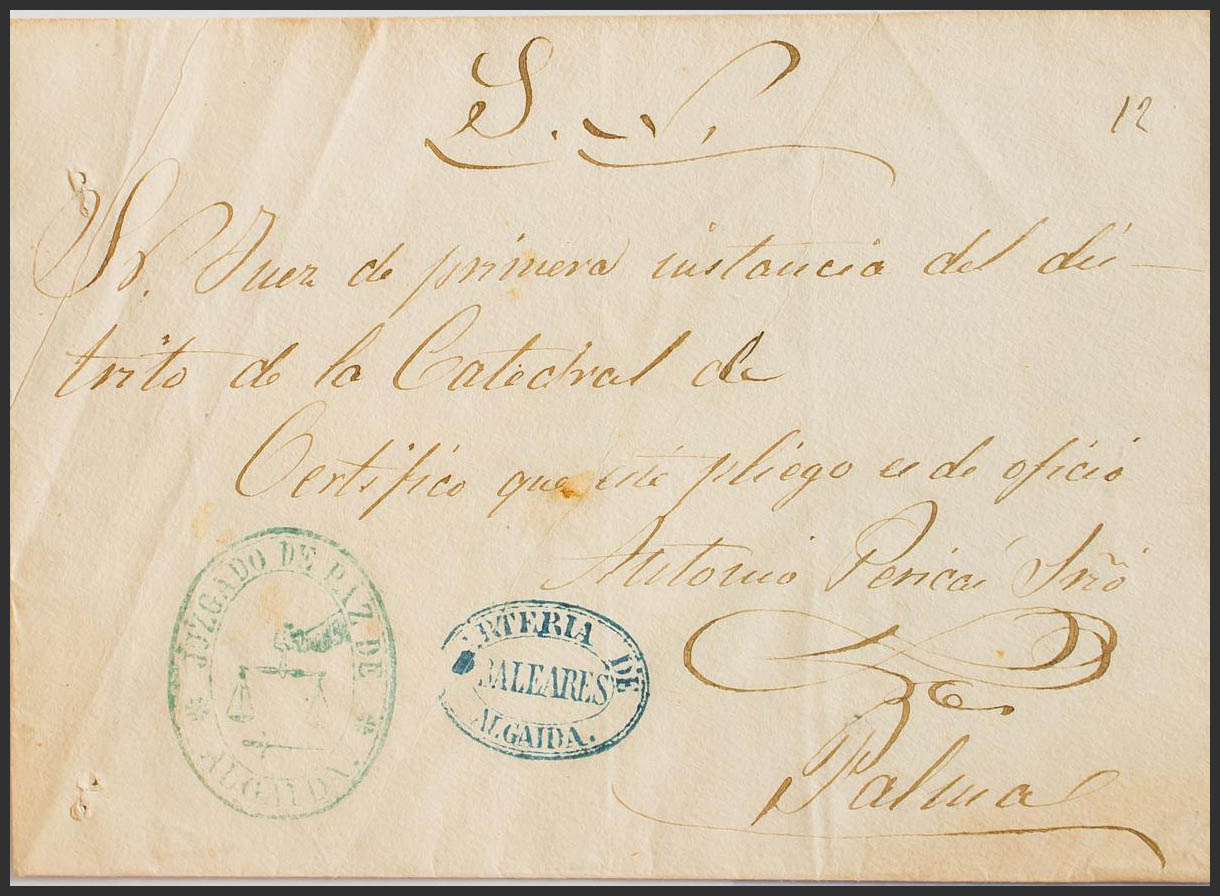 S. N.
12
Sr. Juez de primera instancia del dis-
trito de la Catedral de
Certifico que este pliego es de oficio
Antonio Pericás Srio
JUZGADO DE PAZ DE
* ALGAIDA. *
RTERIA DE
BALEARES
ALGAIDA.
Palma